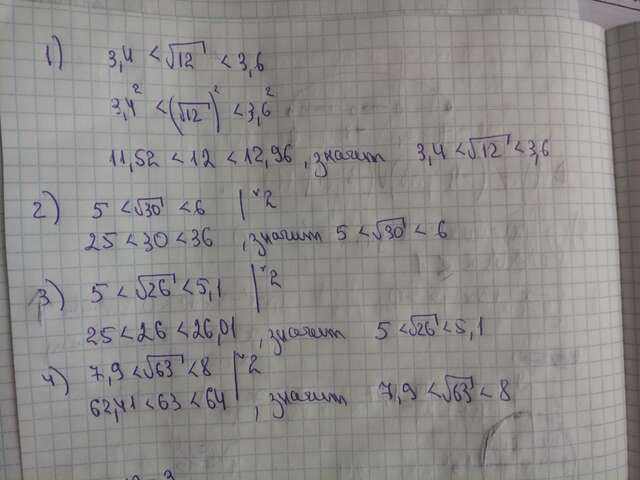 1) 3,4 < √12 < 3,6
3,4² < (√12)² < 3,6²
11,52 < 12 < 12,96, значит 3,4 < √12 < 3,6
2) 5 < √30 < 6 |^2
25 < 30 < 36, значит 5 < √30 < 6
3) 5 < √26 < 5,1 |^2
25 < 26 < 26,01, значит 5 < √26 < 5,1
4) 7,9 < √63 < 8 |^2
62,41 < 63 < 64, значит 7,9 < √63 < 8